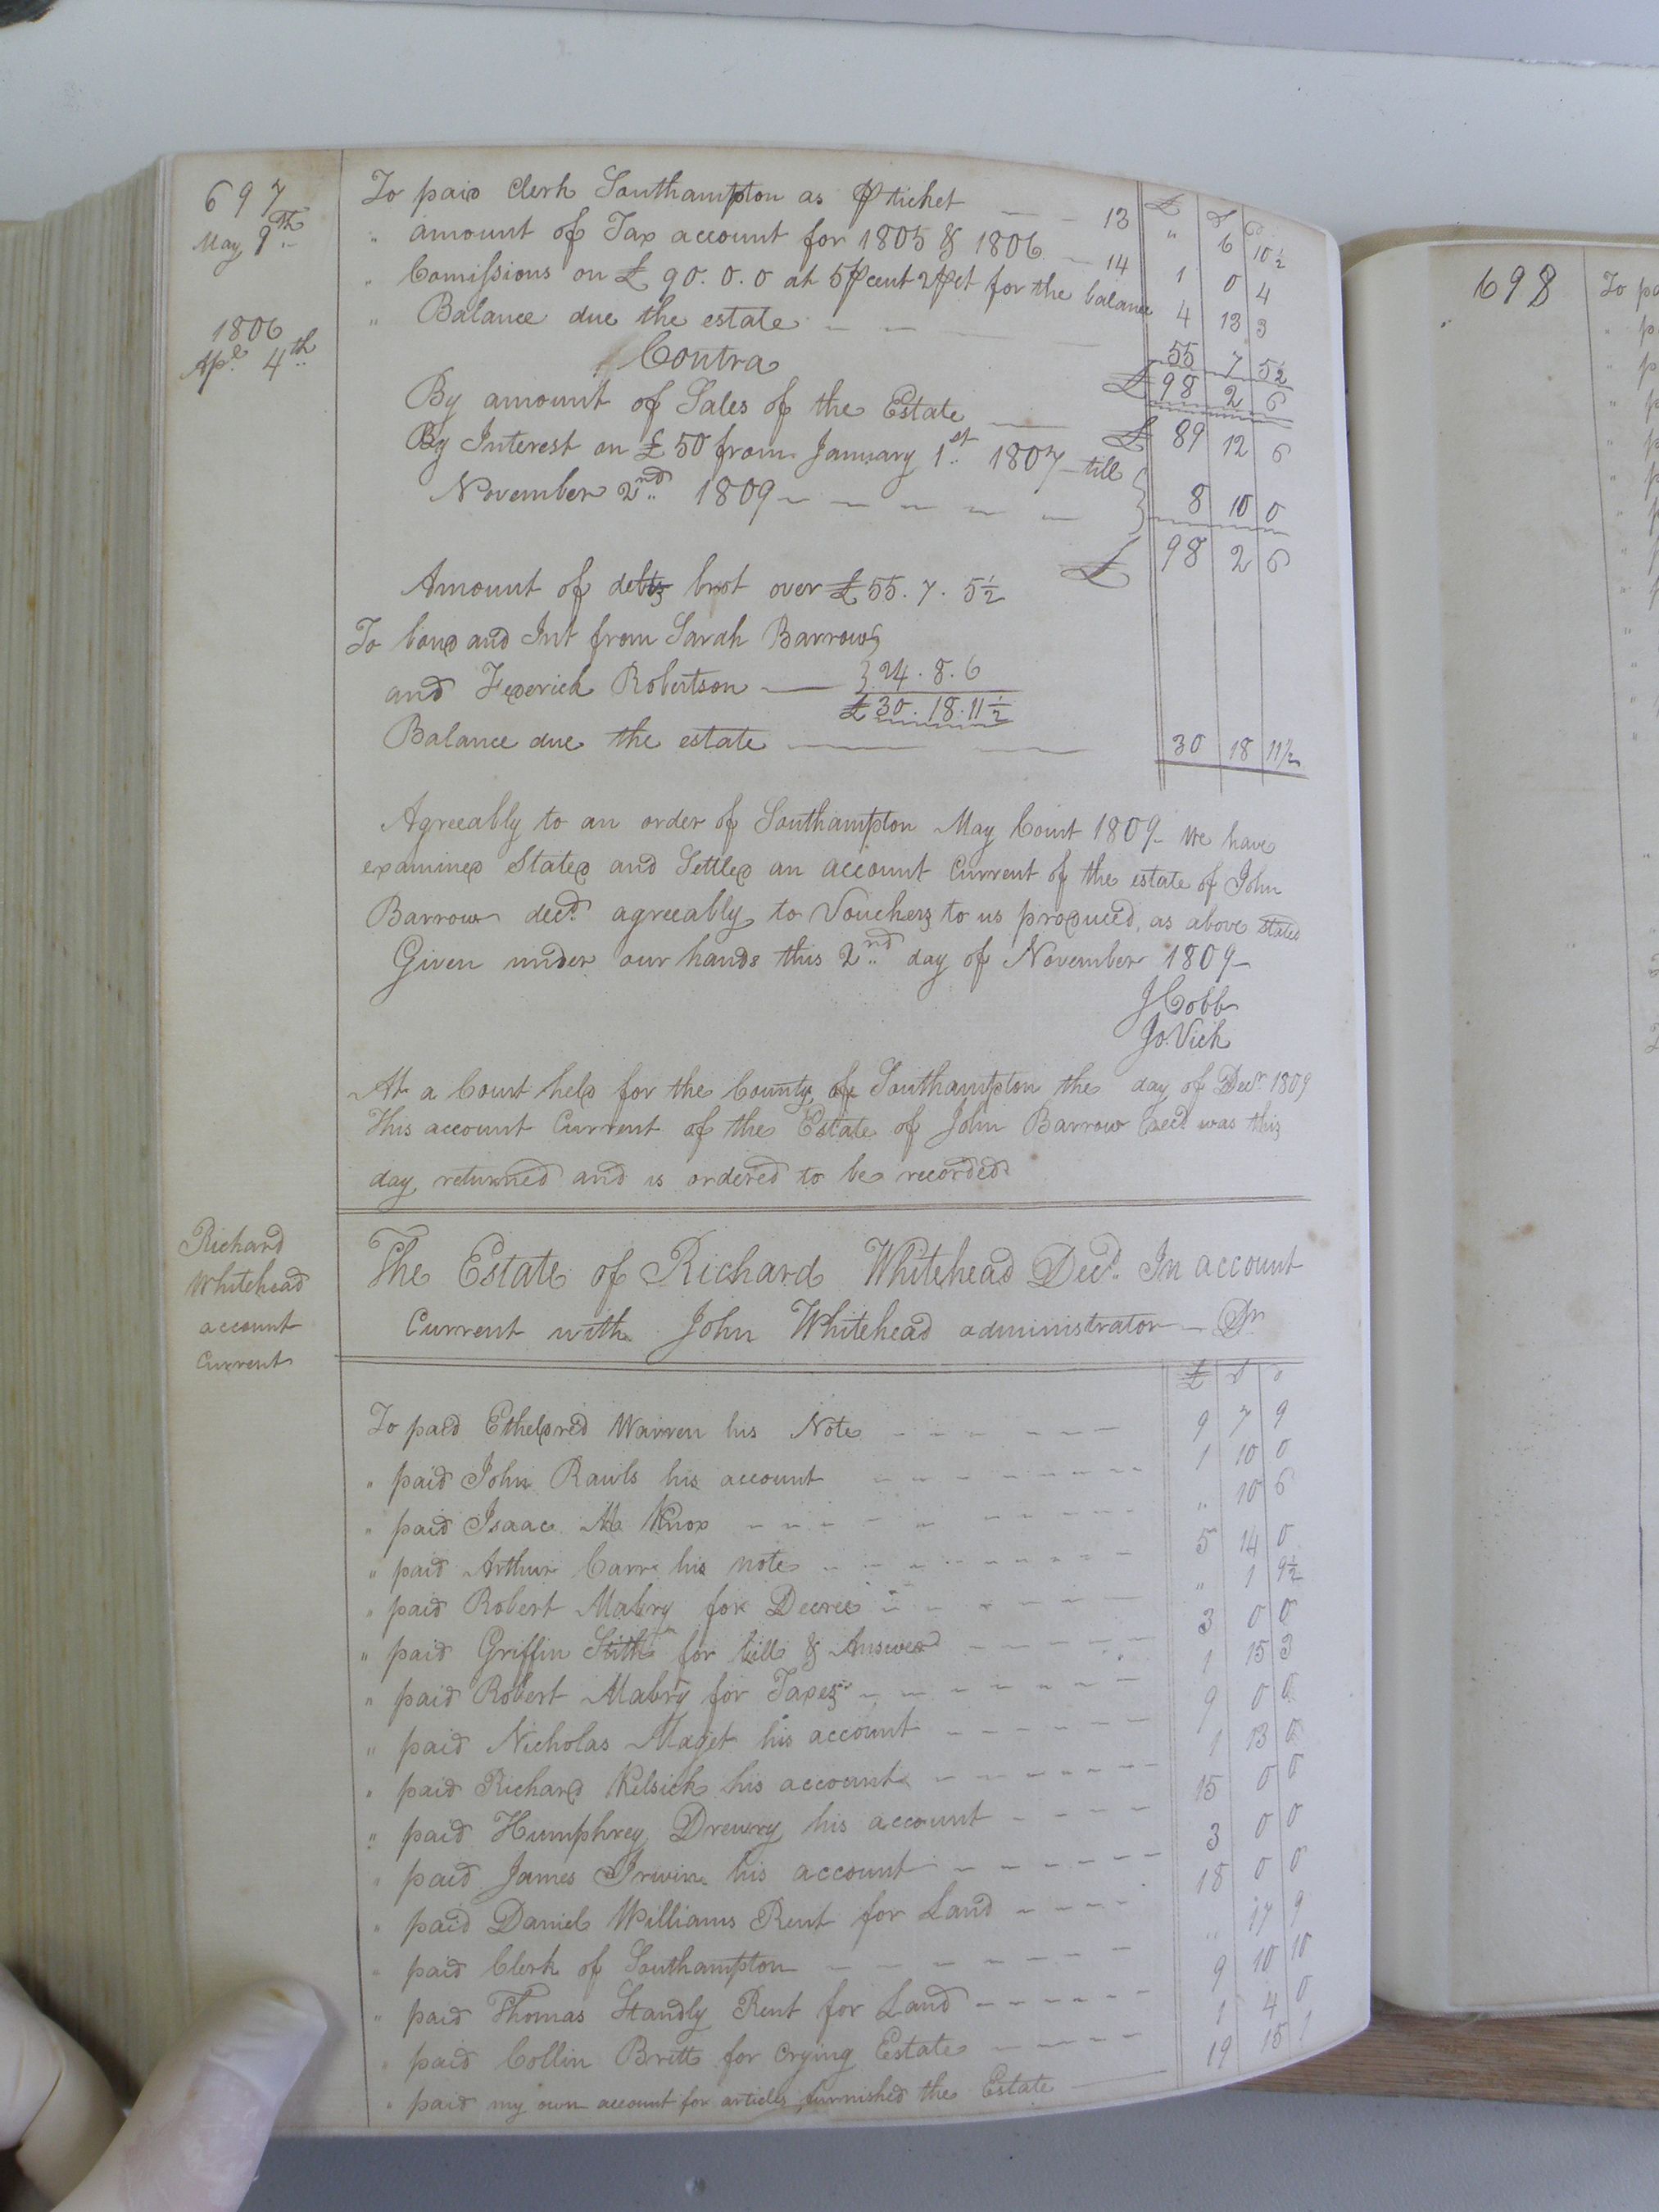 697
May 9th
To paid Clerk Southampton as ⅌ ticket 13 " 6 10½
£ s d
" amount of Tax account for 1805 & 1806 14 1 0 4
" Comissions on £ 90.0.0 at 5⅌cent 2⅌ct for the balance 4 13 3
" Balance due the estate 55 7 5½
£ 98 2 6
1806
Apl 4th
Contra
By amount of Sales of the Estate £ 89 12 6
By Interest on £50 from January 1st 1807 till
November 2nd 1809 8 10 0
£ 98 2 6
Amount of debts brot over £55.7.5½
To bond and Int from Sarah Barrow
and Federick Robertson 24.8.6
£30.18.11½
Balance due the estate 30 18 11½
Agreeably to an order of Southampton May Court 1809 We have
examined Stated and Settled an account Current of the estate of John
Barrow decd. agreeably to Vouchers to us produced, as above stated
Given under our hands this 2nd day of November 1809
J Cobb
Jo. Vick
At a Court held for the County of Southampton the day of Decr 1809
This account Current of the Estate of John Barrow decd was this
day returned and is ordered to be recorded
Richard
Whitehead
account
Current
The Estate of Richard Whitehead Decd. In account
Current with John Whitehead administrator Dr
£ s d
To paid Etheldred Warren his Note 9 7 9
" paid John Rawls his account 1 10 0
" paid Isaac M Knox " 10 6
" paid Arthur Carr his note 5 14 0
" paid Robert Mabry for Decree " 1 9½
" paid Griffin Stith for bill & Answer 3 0 0
" paid Robert Mabry for Taxes 1 15 3
" paid Nicholas Maget his account 9 0 0
" paid Richard Kelsick his account 1 13 0
" paid Humphrey Drewry his account 15 0 0
" paid James Irwin his account 3 0 0
" paid Daniel Williams Rent for Land 18 0 0
" paid Clerk of Southampton " 17 9
" paid Thomas Standly Rent for Land 9 10 10
" paid Collin Britt for Crying Estate 1 4 0
" paid my own account for articles furnished the Estate 19 15 1
698
To pa